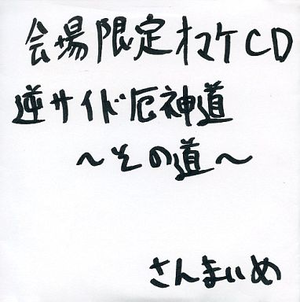 会場限定オマケCD
逆サイド厄神道
〜その道〜
さんまいめ